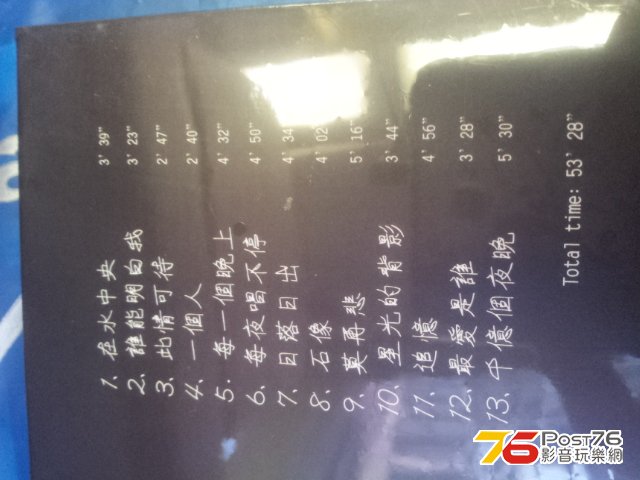 1. 在水中央 3' 39"
2. 誰能明白我 3' 23"
3. 此情可待 2' 47"
4. 一個人 2' 40"
5. 每一個晚上 4' 32"
6. 每夜唱不停 4' 50"
7. 日落日出 4' 34"
8. 石像 4' 02"
9. 莫再悲 5' 16"
10. 星光的背影 3' 44"
11. 追憶 4' 56"
12. 最愛是誰 3' 28"
13. 千億個夜晚 5' 30"
Total time: 53' 28"
76 Post76
影音玩樂網